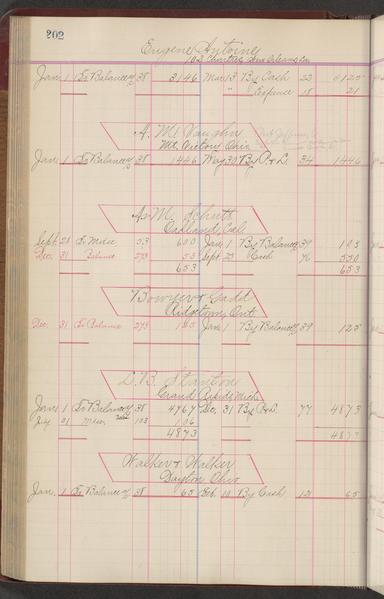 202
Eugene Antoine
Jan. 1 To Balance 38 3146 Mar 3 By Cash 22 3125
" Expence 18 21
A. M. Vaughn
Mt. Victory Ohio
Jan. 1 To Balance 38 1446 May 30 By P. & L. 34 1446
Schutt
Oakland, Cal.
Sept. 28 To Mdse 53 600 Jan. 1 By Balance 39 103
Dec. 31 Balance 273 53 Sept. 25 Cash 76 550
653 653
Bowyer & Gadd
Ridgetown, Ont
Dec. 31 To Balance 273 125 Jan. 1 By Balance 39 125
D. B. Stanton
Grand Rapids Mich
Jan. 1 To Balance 38 4767 Dec. 31 By P. & L. 77 4873
31 Mdse 103 106
4873 4873
Walker & Walker
Dayton Ohio
Jan. 1 To Balance 38 65 Feb. 10 By Cash 12 65